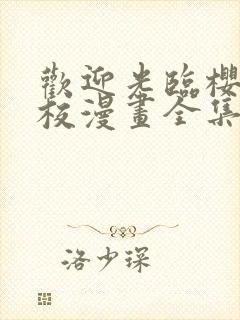 歡迎光臨櫻
校漫畫全集
洛少琛